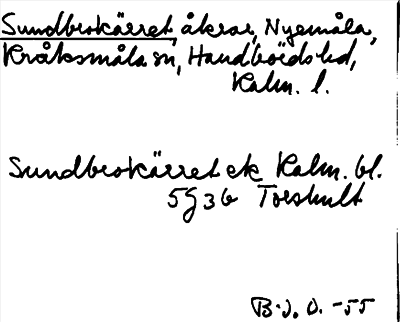 Sundbrokärret, åkrar, Nyemåla,
Kråksmåla sn, Handbörds hd,
Kalm. l.
Sundbrokärret ek Kalm. bl.
5G3b Torshult
B.J. O. -55